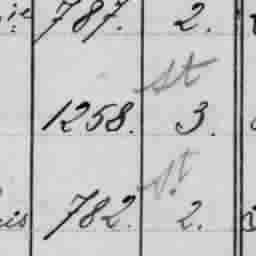 ie 787. 2.
st
1258. 3.
st
is 782. 2.